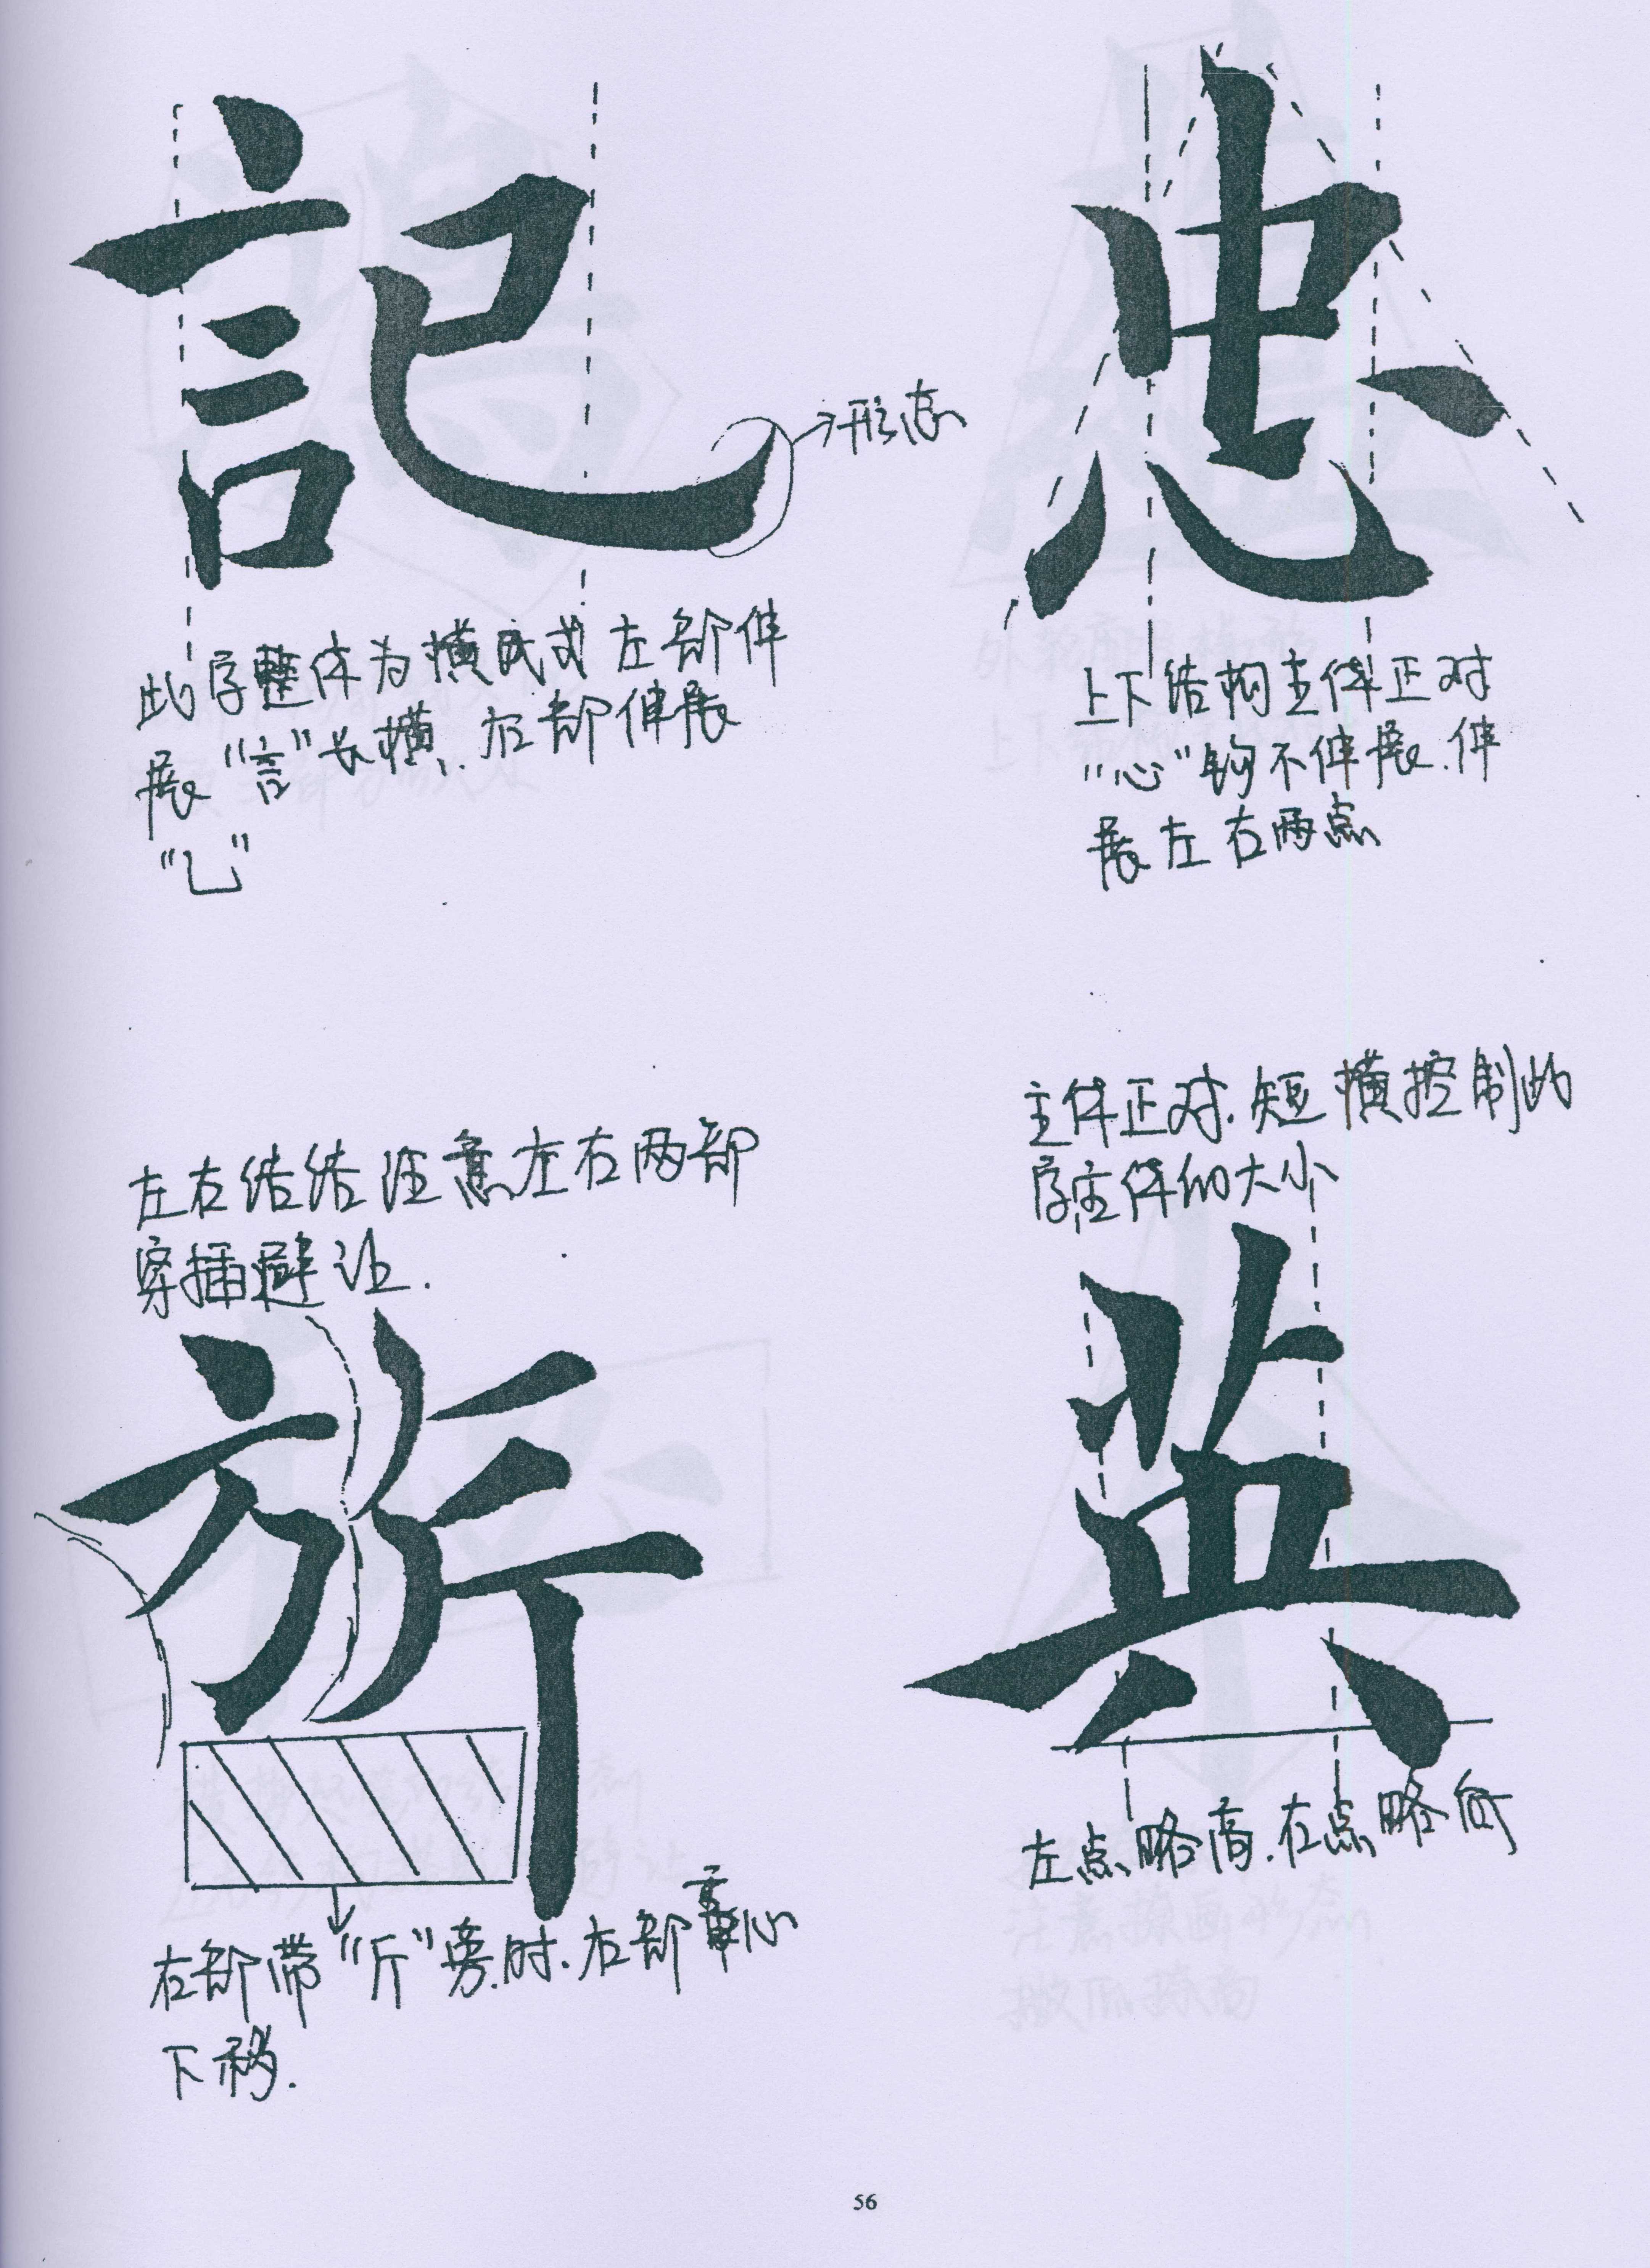 記
→形态
此字整体为横民式左部伸
展"言"长横.右部伸展
"乚"
忠
上下结构主体正对
"心"钩不伸展.伸
展左右两点
左右结结注意左右两部
穿插避让.
主体正对.短横控制此
字主体的大小
典
左点略高.右点略低
右部带"斤"旁时.右部重心
下移.
56